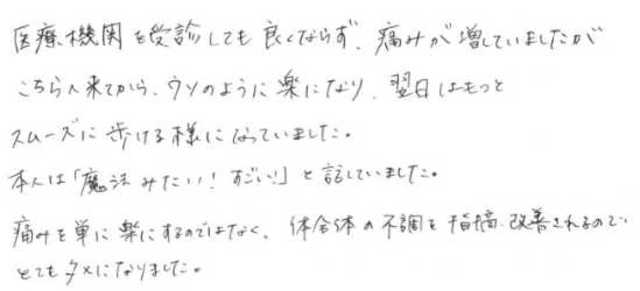 医療機関を受診しても良くならず、痛みが増していましたが
こちらへ来てから、ウソのように楽になり、翌日はもっと
スムーズに歩ける様になっていました。
本人は「魔法みたい！すごい！」と話していました。
痛みを単に楽にするのではなく、体全体の不調を指摘、改善されるので
とてもタメになりました。